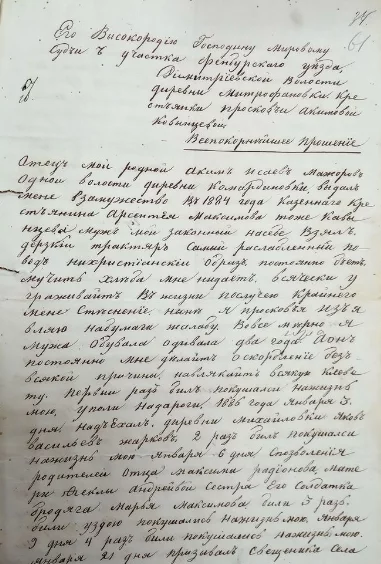 61
Его Високородію Господину Мировому
Судьи 2 участка Оренбургского уѣзда
Димитріевской Волости
деревни Митрофановки Кре
стьянки Просковьи Акимовой
Ковынцевой
Всепокорнѣйшее Прошеніе
Отецъ мой родной Акимъ Исаевъ Мажоровъ
одной волости деревни Комардиновки, выдалъ
мене Взамужество Въ 1884 года Казеннаго Кре
стьянина Арсентія Максимова тоже Кавы
нцева Мужъ мой законный насебе Взялъ
дерзкій трактяръ Самый распасленный по
водъ нихристіанскій Образъ постоянно бьетъ
мучить хлѣба мне нидаетъ, всячески у
граживаитъ В жизни послучею Крайняго
мене Стесненіе, нинѣ я просковья изъя
вляю набумага жалобу. Вовсе мирно я
мужа Обувала одивала два года Аонъ
постоянно мне дилаить оскорбленіе безъ
всякой причины, навлякаитъ всякую клеве
ту. Первый разъ билъ покушался нажизнь
мою, у поли надароги, 1886 года Января 3.
дня, Надъѣхалъ, деревни Михайловки Яковъ
васильевъ жарковъ, 2 разъ билъ покушался
нажизнь мою Января 6 дня Спозволенія
родителей Отца Максима радіонова, Мате
ри Ѳеклы Андрейвой Сестра Его Солдатка
бродяга Марья Максимова били 3 разъ
били уздою покушались нажизнь мою, Января
9 дня 4 разъ били покушались нажизнь мою.
Января 21 дня призывалъ Священика Села